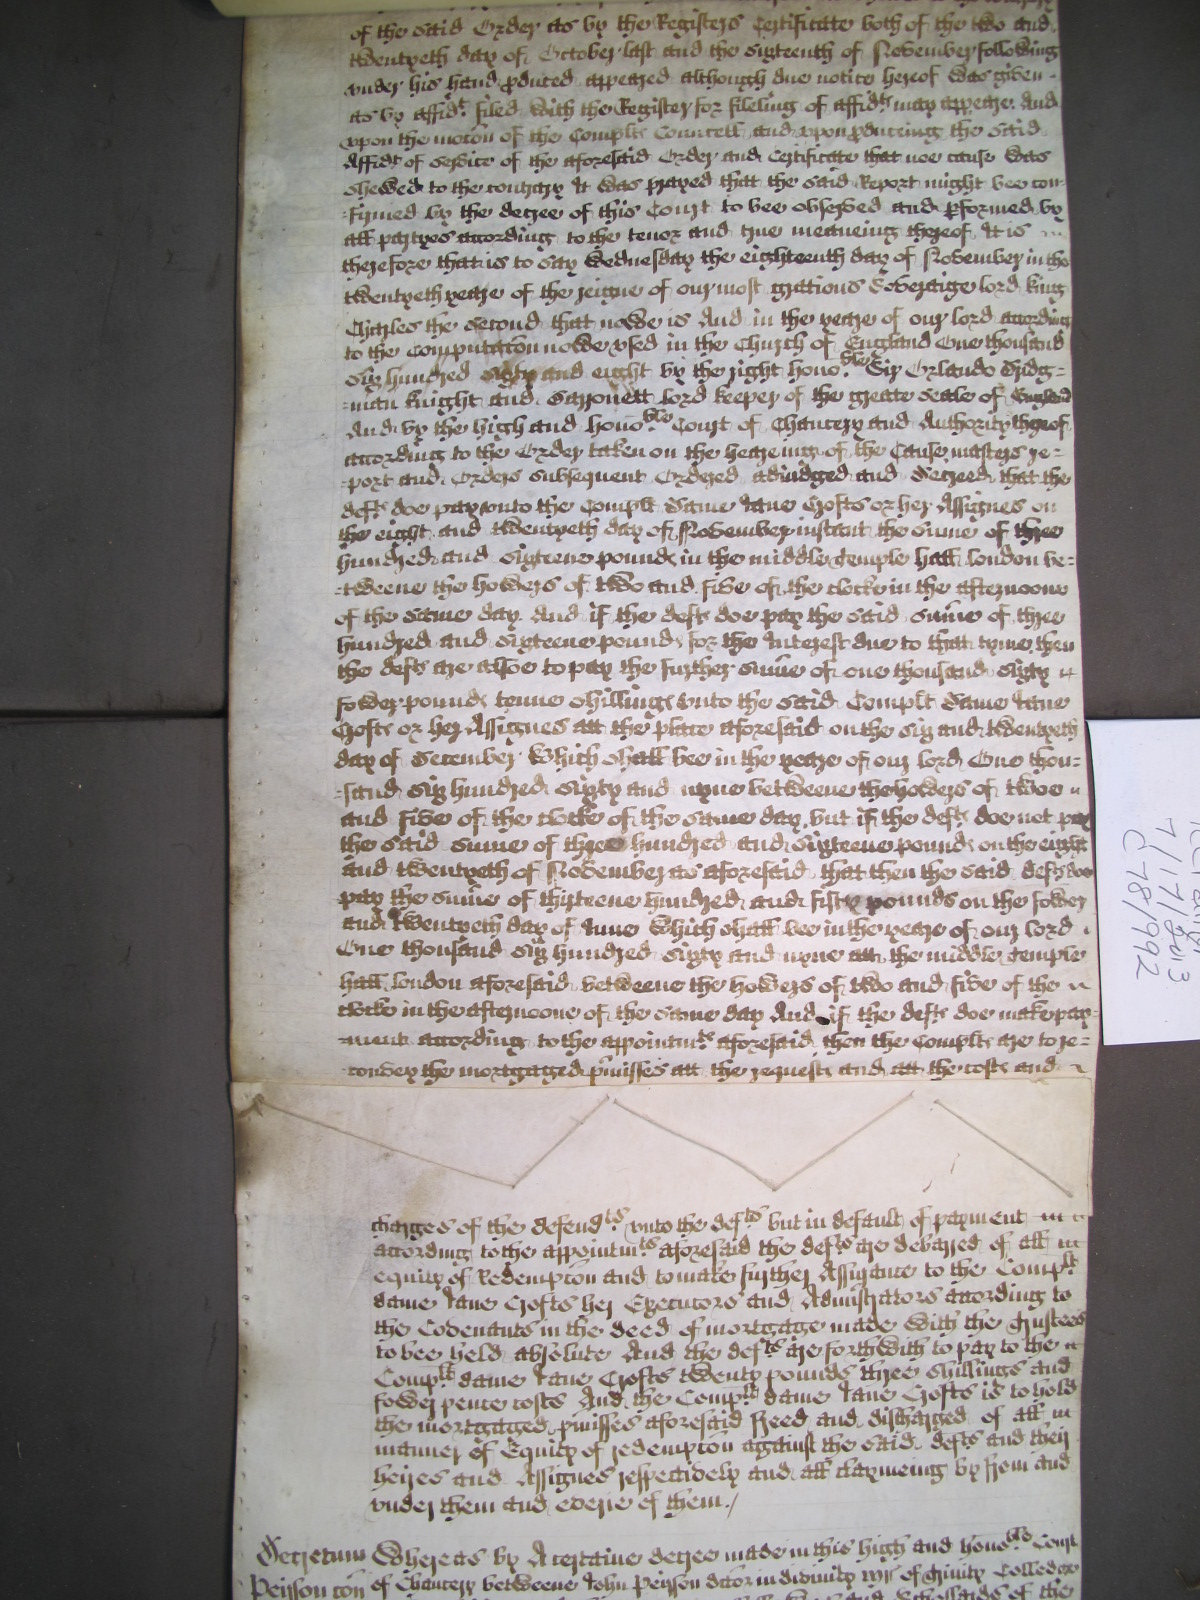 of the said Order as by the Registers Certificate both of the two and
twentyeth day of October last and the sixteenth of November following
under his hand produced appeared although due notice hereof was given
as by affidt filed with the Register for fileing of affidts may appeare. And
upon the motion of the Complts Councell and upon produceing the said
Affidt of service of the aforesaid Order and Certificate that noe cause was
shewed to the contrary It was prayed that the said Report might bee con-
-firmed by the decree of this Court to bee observed and pformed by
all partyes according to the tenor and true meaneing thereof, It is
therefore that is to say Wednesday the eighteenth day of November in the
twentyeth yeare of the reigne of our most gratious Soveraigne lord King
Charles the Second that nowe is And in the yeare of our lord according
to the Computacon nowe used in the Church of England One thousand
Six hundred sixty and eight by the right honoble Sir Orlando Bridg=
=man Knight and Barronett lord keeper of the greate Seale of England
And by the high and honoble Court of Chancery and Authority thereof
according to the Order taken on the heareing of the Cause masters re=
-port and Orders subsequent Ordered adiudged and Decreed that the
defts doe pay unto the Complt Dame Jane Crofts or her Assignes on
the eight and twentyeth day of November instant the sume of three
hundred and sixteene pounds in the middle Temple hall London be=
-tweene the howers of two and five of the clocke in the afternoone
of the same day. And if the defts doe pay the said sume of three
hundred and sixteene pounds for the Interest due to that tyme then
the defts are alsoe to pay the further sume of one thousand sixty
fower pounds tenne shillings unto the said Complt Dame Jane
Crofts or her Assignes att the place aforesaid on the six and twentyeth
day of December Which shall bee in the yeare of our lord One thou=
-sand six hundred sixty and nyne betweene the howers of twoe
and five of the clocke of the same day, but if the defts doe not pay
the said sume of three hundred and sixteene pounds on the eight
and twentyeth of November as aforesaid, that then the said defts doe
pay the sume of thirteene hundred and fifty pounds on the fower
and twentyeth day of June Which shall bee in the yeare of our lord
One thousand six hundred sixty and nyne att the middle Temple
hall London aforesaid betweene the howers of two and five of the
clocke in the afternoone of the same day And if the defts doe make pay=
-ment according to the appointmts aforesaid, then the Complts are to re=
-convey the mortgaged pmisses att the requests and att the costs and
charges of the defendts unto the defts but in default of payment
according to the appointmts aforesaid the defts are debarred of all
equity of Redempcon and to make further Assurance to the Complt
dame Jane Crofts her Executors and Administrators according to
the Covenants in the deed of mortgage made with the Trustees
to bee held absolute And the defts are forthwith to pay to the
Complt dame Jane Crofts twenty pounds three shillings and
fower pence costs And the Complt dame Jane Crofts is to hold
the mortgaged pmisses aforesaid freed and discharged of all
manner of Equity of redempcon against the said defts and their
heires and Assignes respectively and all claymeing by from and
under them and everie of them./
Decretum Whereas by A certaine decree made in this high and honoble Court
Peirson con of Chancery betweene John Peirson doctor in divinity mr of Trinity Colledge
of the